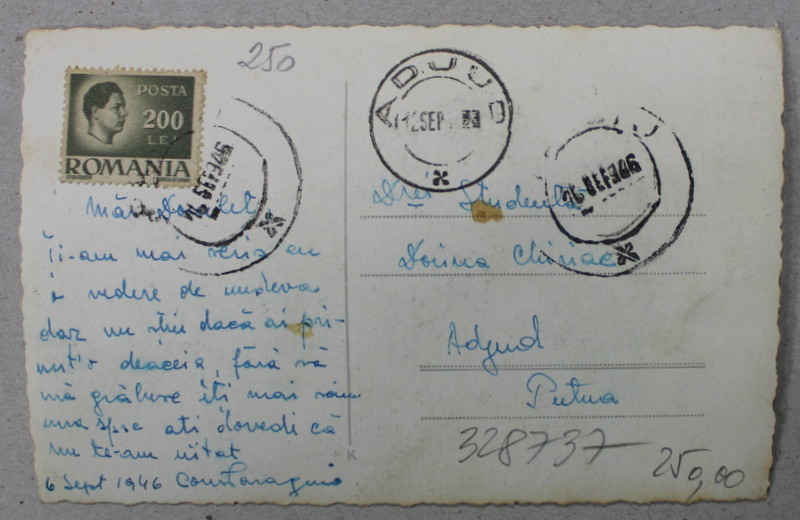 250
POSTA
200
LEI
ROMANIA
ADJUD
12 SEP
Ți-am mai scris cu
o vedere de undeva
dar nu știu dacă ai pri-
mit'o deaceia, fără să
mă grăbesc îți mai
una spre a-ți dovedi că
nu te-am uitat
6 Sept 1946
Drei Studentă
Dorina Chiriac
Adjud
Putna
328737
250,00
K